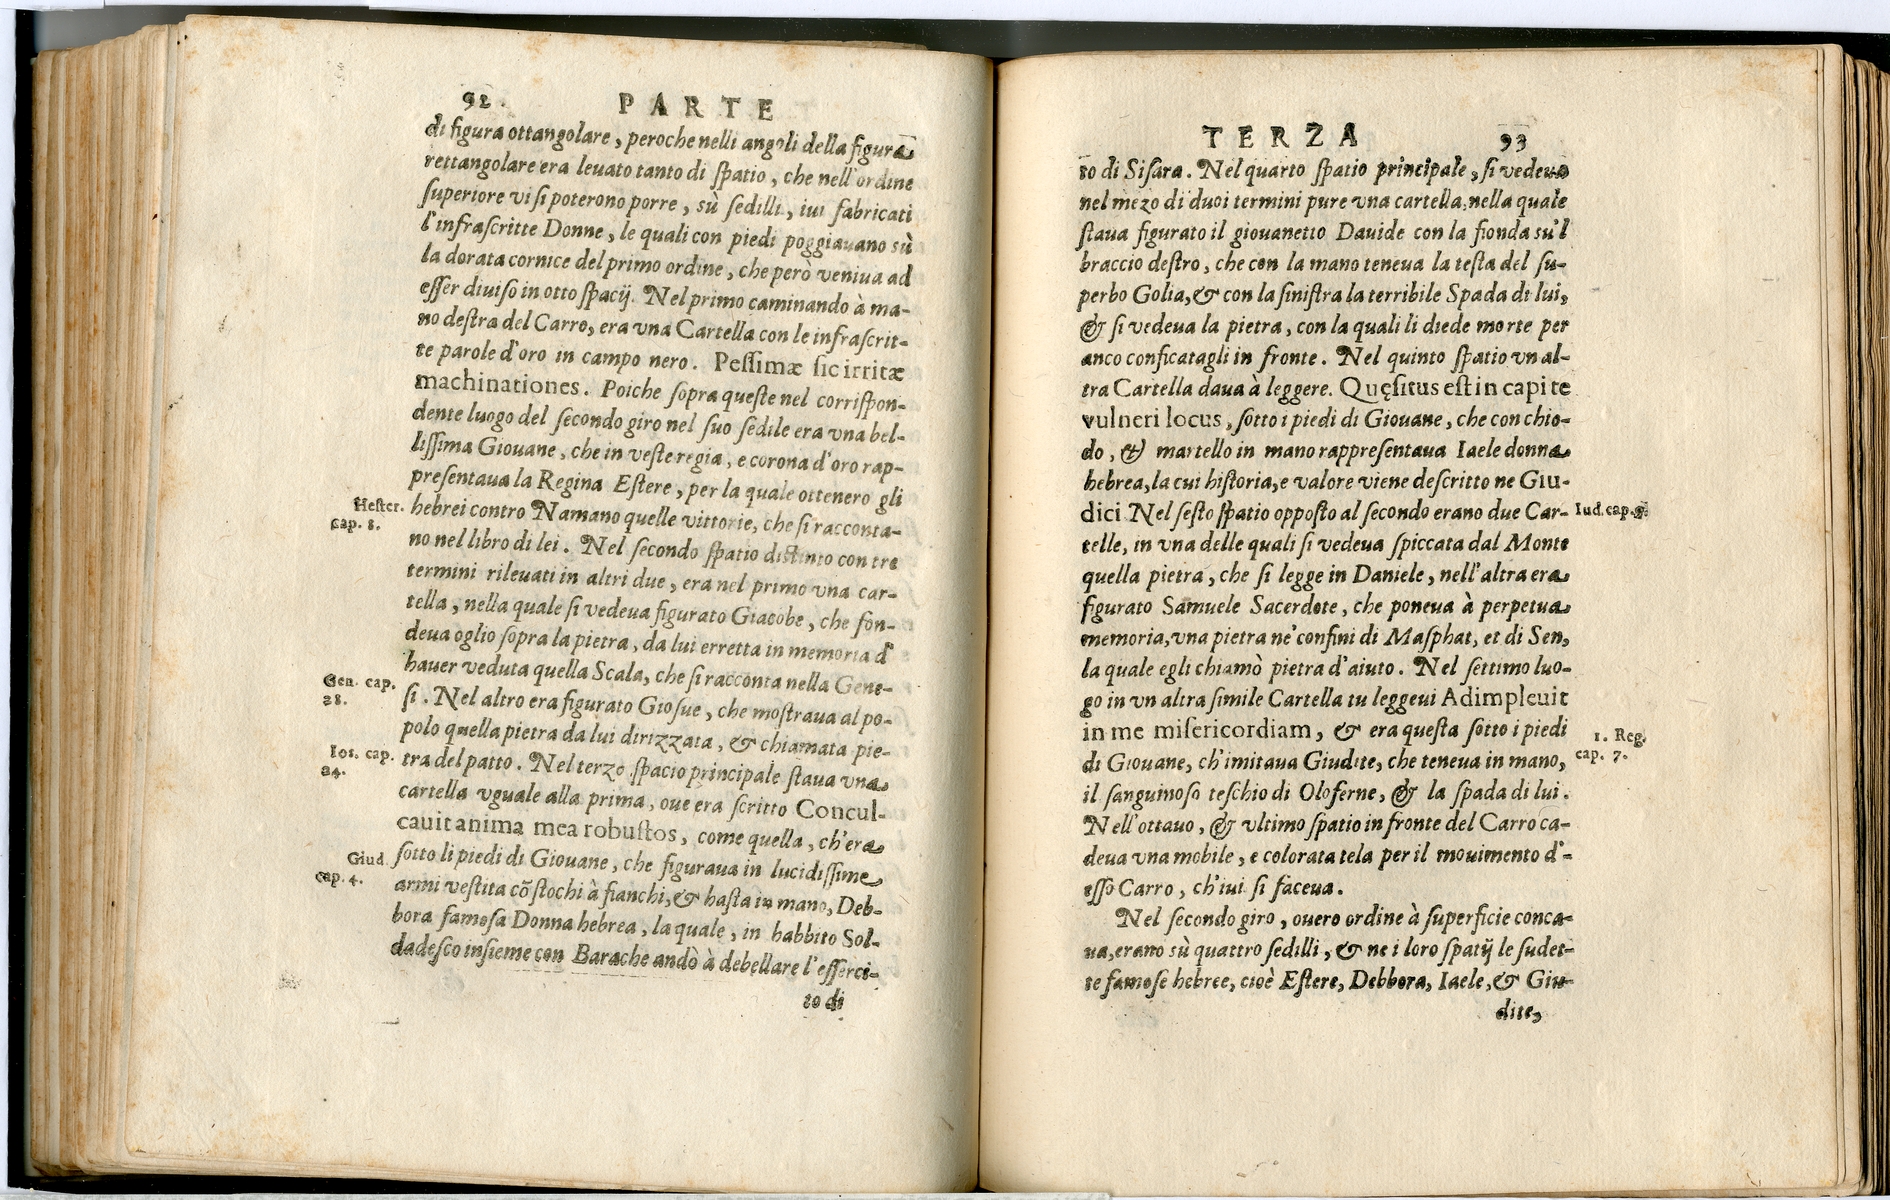 92. PARTE
di figura ottangolare, peroche nelli angoli della figura
rettangolare era leuato tanto di ſpatio, che nell'ordine
ſuperiore vi ſi poterono porre, sù ſedilli, iui fabricati
l'infraſcritte Donne, le quali con piedi poggiauano sù
la dorata cornice del primo ordine, che però veniua ad
eſſer diuiſo in otto ſpacij. Nel primo caminando à ma-
no deſtra del Carro, era vna Cartella con le infraſcrit-
te parole d'oro in campo nero. Peſſimæ ſic irritæ
machinationes. Poiche ſopra queſte nel corriſpon-
dente luogo del ſecondo giro nel ſuo ſedile era vna bel-
liſſima Giouane, che in veſte regia, e corona d'oro rap-
preſentaua la Regina Eſtere, per la quale ottenero gli
Heſter. cap. 8.
hebrei contro Namano quelle vittorie, che ſi racconta-
no nel libro di lei. Nel ſecondo ſpatio diſtinto con tre
termini rileuati in altri due, era nel primo vna car-
tella, nella quale ſi vedeua figurato Giacobe, che fon-
deua oglio ſopra la pietra, da lui erretta in memoria d'
hauer veduta quella Scala, che ſi racconta nella Gene-
Gen. cap. 28.
ſi. Nel altro era figurato Gioſue, che moſtraua al po-
polo quella pietra da lui dirizzata, & chiamata pie-
Ios. cap. 24.
tra del patto. Nel terzo ſpacio principale ſtaua vna
cartella vguale alla prima, oue era ſcritto Concul-
cauit anima mea robuſtos, come quella, ch'era
Giud. cap. 4.
ſotto li piedi di Giouane, che figuraua in lucidiſſime
armi veſtita cõ ſtochi à fianchi, & haſta in mano, Deb-
bora famoſa Donna hebrea, la quale, in habbito Sol-
dadeſco inſieme con Barache andò à debellare l'eſſerci-
to di
TERZA 93
to di Siſara. Nel quarto ſpatio principale, ſi vedeua
nel mezo di duoi termini pure vna cartella, nella quale
ſtaua figurato il giouanetto Dauide con la fionda su'l
braccio deſtro, che con la mano teneua la teſta del ſu-
perbo Golia, & con la ſiniſtra la terribile Spada di lui,
& ſi vedeua la pietra, con la quali li diede morte per
anco conficatagli in fronte. Nel quinto ſpatio vn al-
tra Cartella daua à leggere. Quęſitus eſt in capite
vulneri locus, ſotto i piedi di Giouane, che con chio-
do, & martello in mano rappreſentaua Iaele donna
hebrea, la cui hiſtoria, e valore viene deſcritto ne Giu-
dici Nel ſeſto ſpatio oppoſto al ſecondo erano due Car-
Iud. cap.
telle, in vna delle quali ſi vedeua ſpiccata dal Monte
quella pietra, che ſi legge in Daniele, nell'altra era
figurato Samuele Sacerdote, che poneua à perpetua
memoria, vna pietra ne' confini di Maſphat, et di Sen,
la quale egli chiamò pietra d'aiuto. Nel ſettimo luo-
go in vn altra ſimile Cartella tu leggeui Adimpleuit
in me miſericordiam, & era queſta ſotto i piedi
1. Reg. cap. 7.
di Giouane, ch'imitaua Giudite, che teneua in mano,
il ſanguinoſo teſchio di Oloferne, & la ſpada di lui.
Nell'ottauo, & vltimo ſpatio in fronte del Carro ca-
deua vna mobile, e colorata tela per il mouimento d'-
eſſo Carro, ch'iui ſi faceua.
Nel ſecondo giro, ouero ordine à ſuperficie conca-
ua, erano sù quattro ſedilli, & ne i loro ſpatij le ſudet-
te famoſe hebree, cioè Eſtere, Debbora, Iaele, & Giu-
dite,